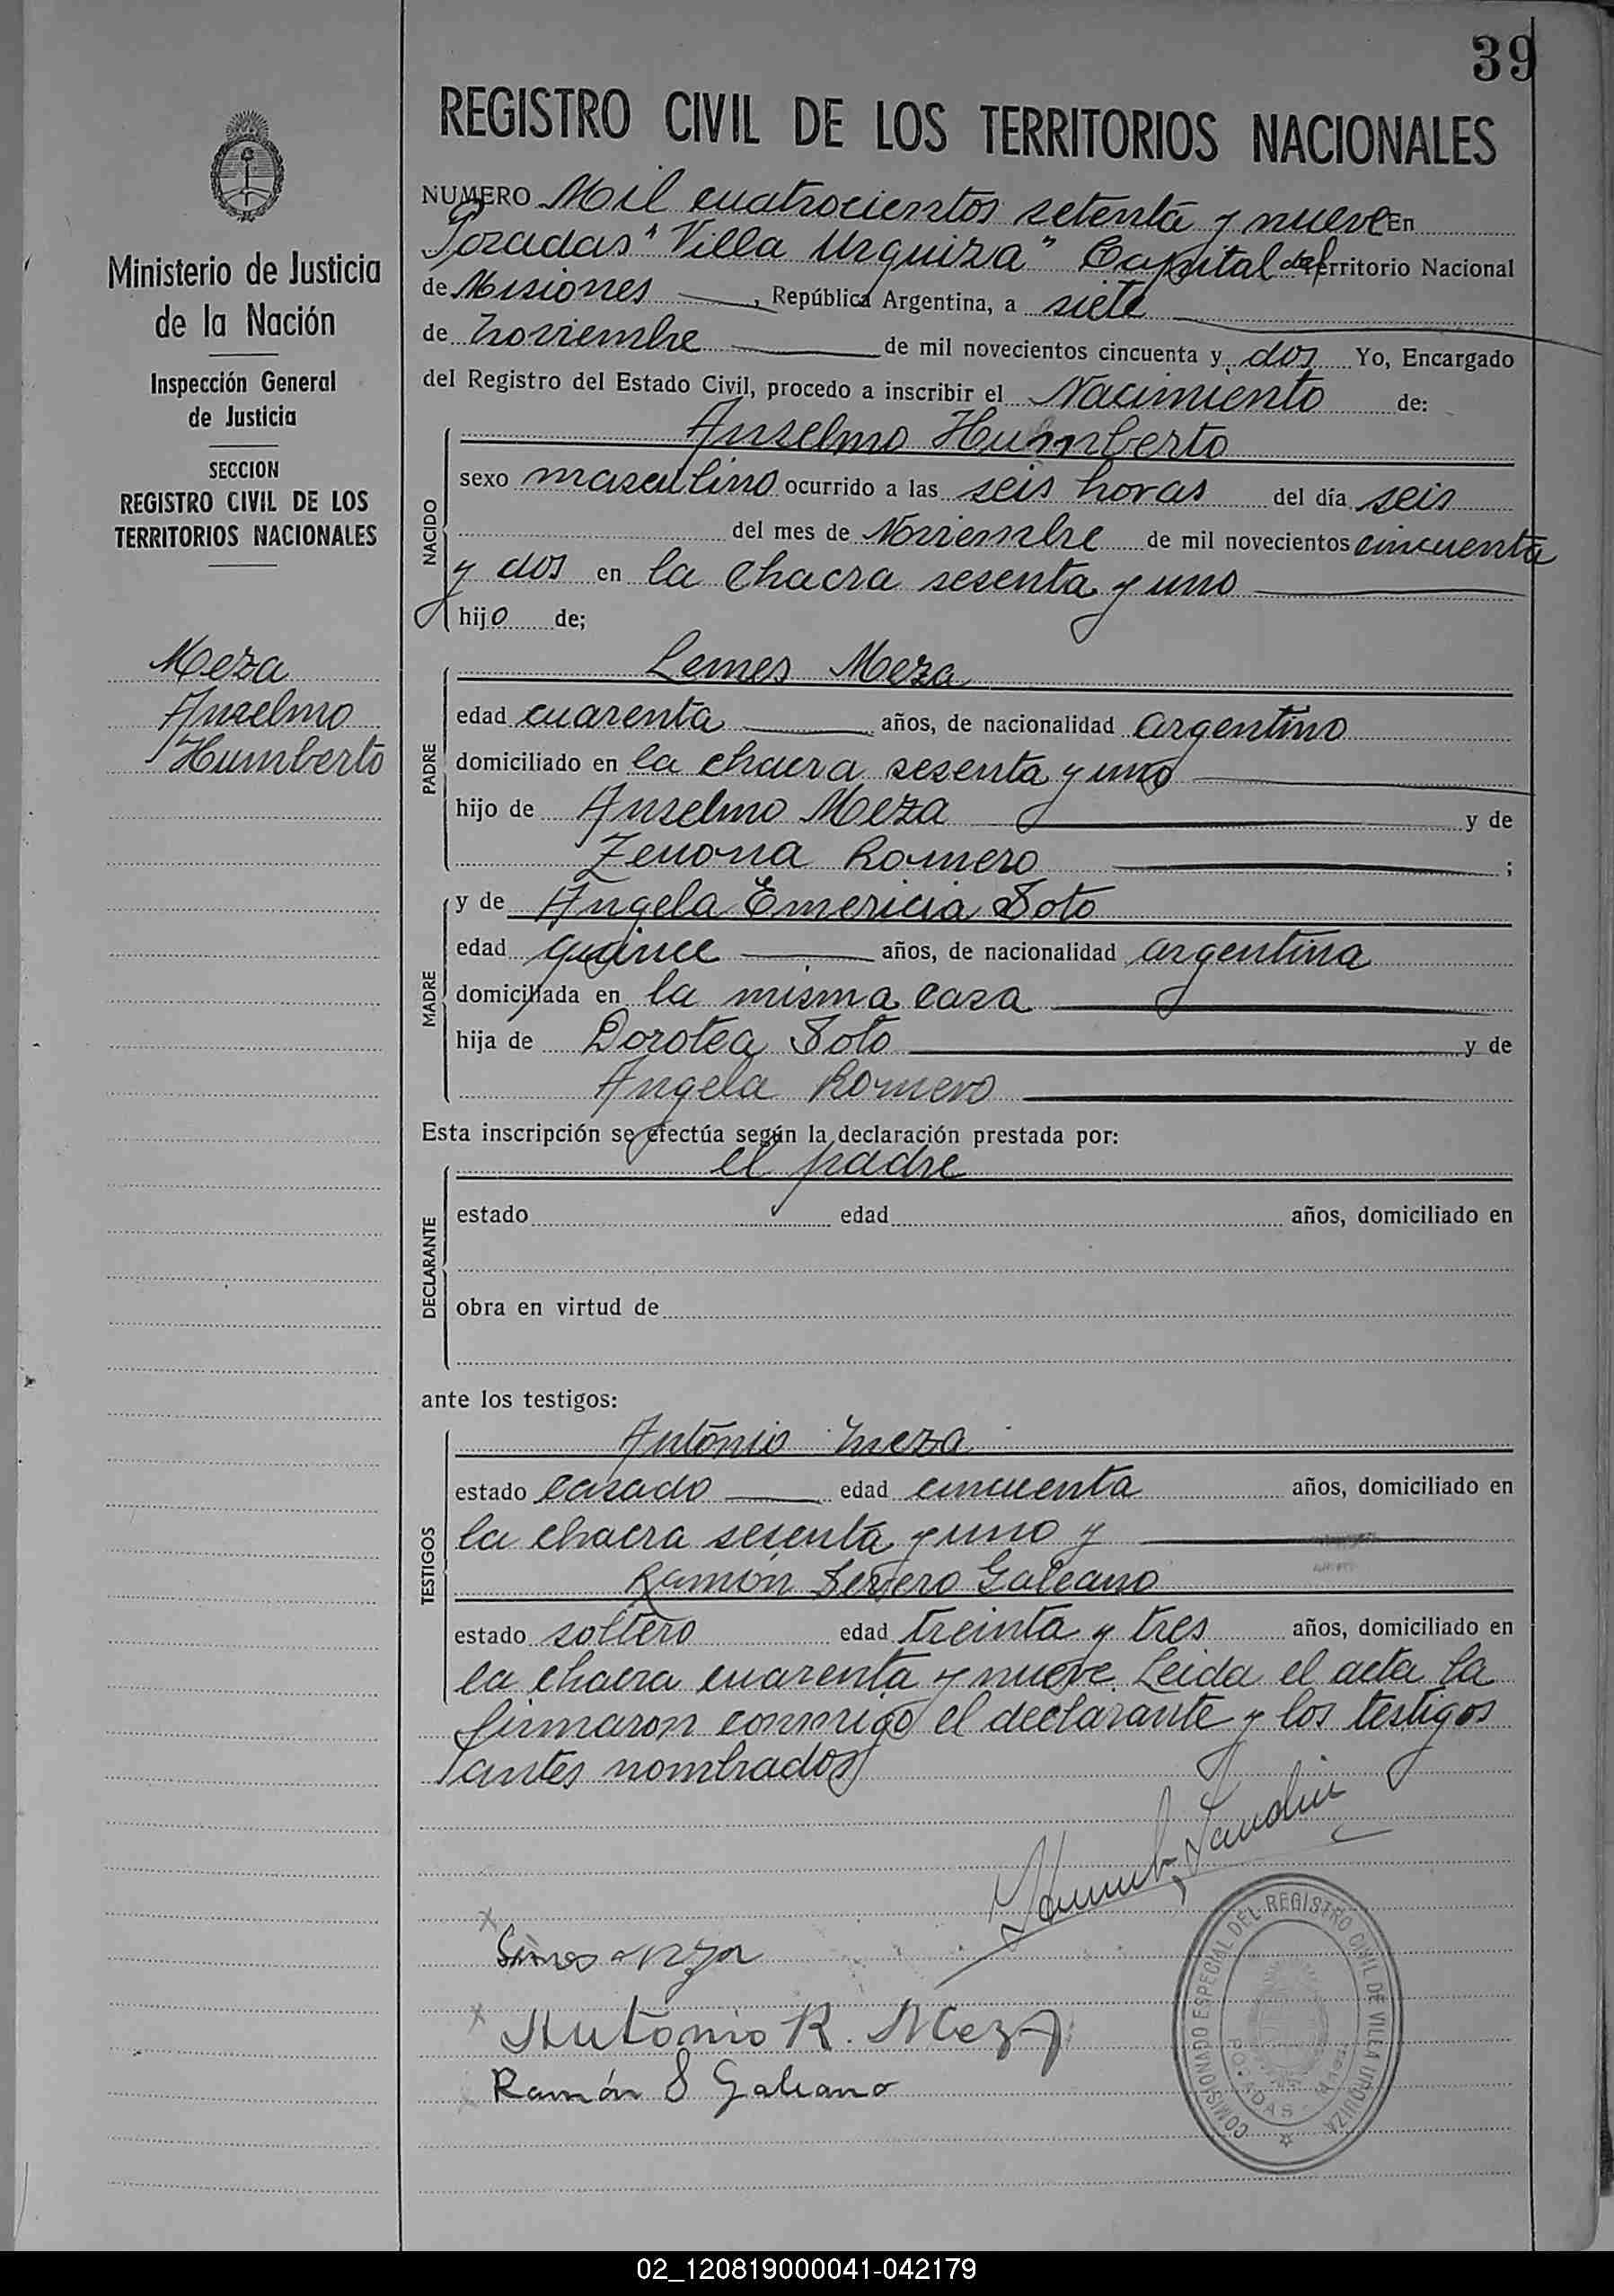 39
REGISTRO CIVIL DE LOS TERRITORIOS NACIONALES
Ministerio de Justicia
de la Nación
Inspección General
de Justicia
SECCION
REGISTRO CIVIL DE LOS
TERRITORIOS NACIONALES
Meza
Anselmo
Humberto
NUMERO Mil cuatrocientos setenta y nueve En
Posadas "Villa Urquiza" Capital del Territorio Nacional
de Misiones, República Argentina, a siete
de noviembre de mil novecientos cincuenta y dos Yo, Encargado
del Registro del Estado Civil, procedo a inscribir el Nacimiento de:
NACIDO
Anselmo Humberto
sexo masculino ocurrido a las seis horas del día seis
del mes de Noviembre de mil novecientos cincuenta
y dos en la chacra sesenta y uno
hijo de;
PADRE
Lemes Meza
edad cuarenta años, de nacionalidad argentino
domiciliado en la chacra sesenta y uno
hijo de Anselmo Meza y de
Zenona Romero ;
MADRE
y de Angela Emericia Soto
edad quince años, de nacionalidad argentina
domiciliada en la misma casa
hija de Dorotea Soto y de
Angela Romero
Esta inscripción se efectúa según la declaración prestada por:
DECLARANTE
el padre
estado edad años, domiciliado en
obra en virtud de
ante los testigos:
TESTIGOS
Antonio Meza
estado casado edad cincuenta años, domiciliado en
la chacra sesenta y uno y
Ramón Severo Galeano
estado soltero edad treinta y tres años, domiciliado en
la chacra cuarenta y nueve. Leida el acta la
firmaron conmigo el declarante y los testigos
antes nombrados
Antonio R. Meza
Ramón S Galeano
COMISIONADO ESPECIAL DEL REGISTRO CIVIL DE VILLA URQUIZA
POSADAS
02_120819000041-042179